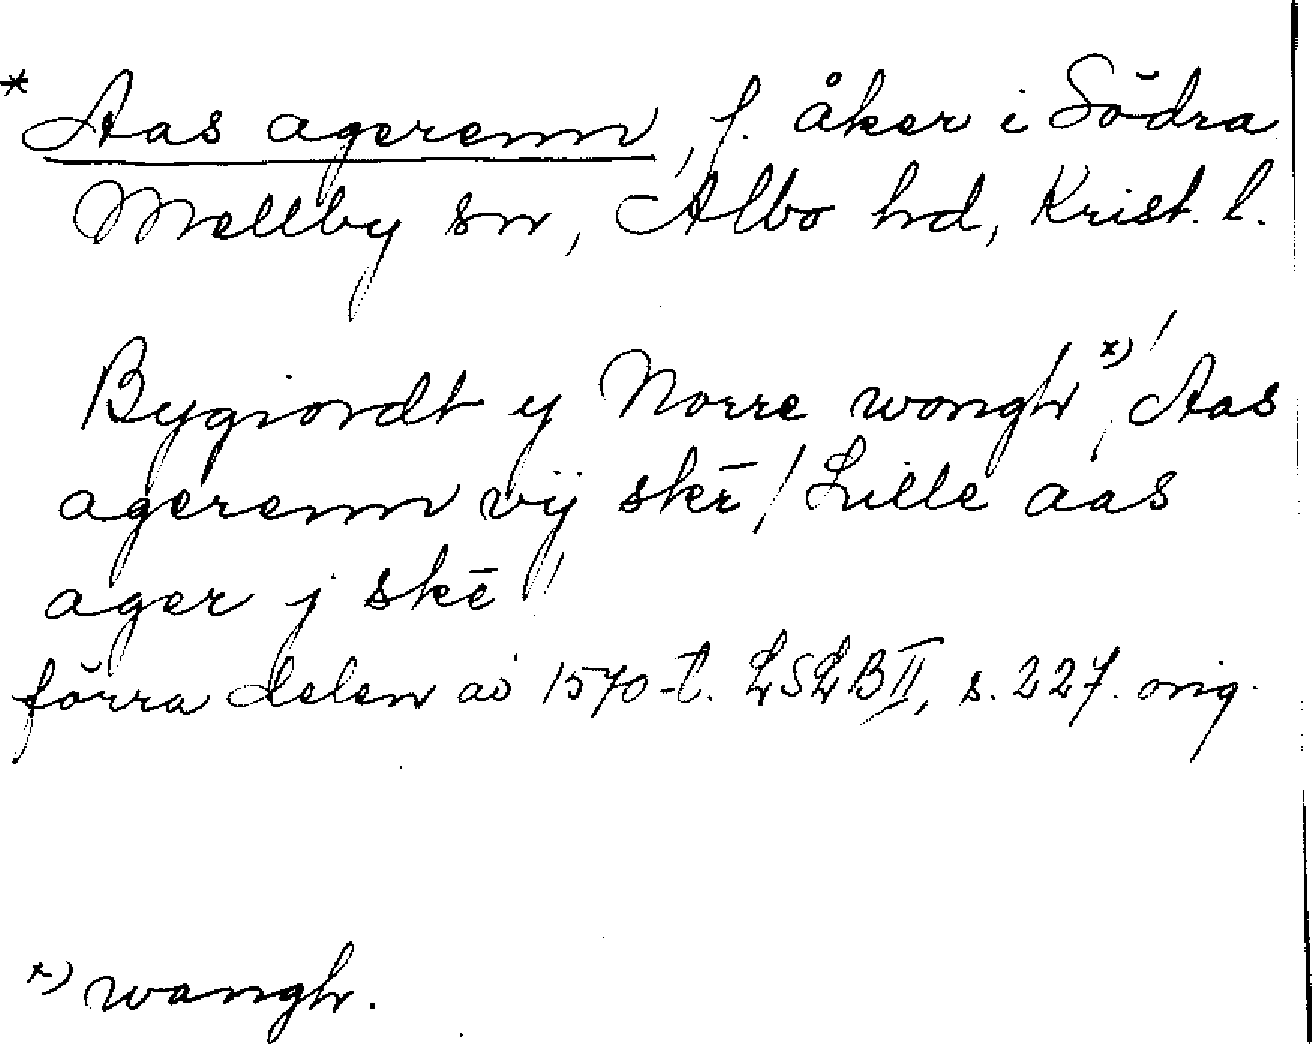 * Aas agerenn, f. åker i Södra
Mellby sn, Albo hd, Krist. l.
Bygiordt y Norre wongh x) / Aas
agerenn vij skē / Lille aas
ager j skē /
förra delen av 1570-t. LSLB II, s. 227. orig.
x) wangh.